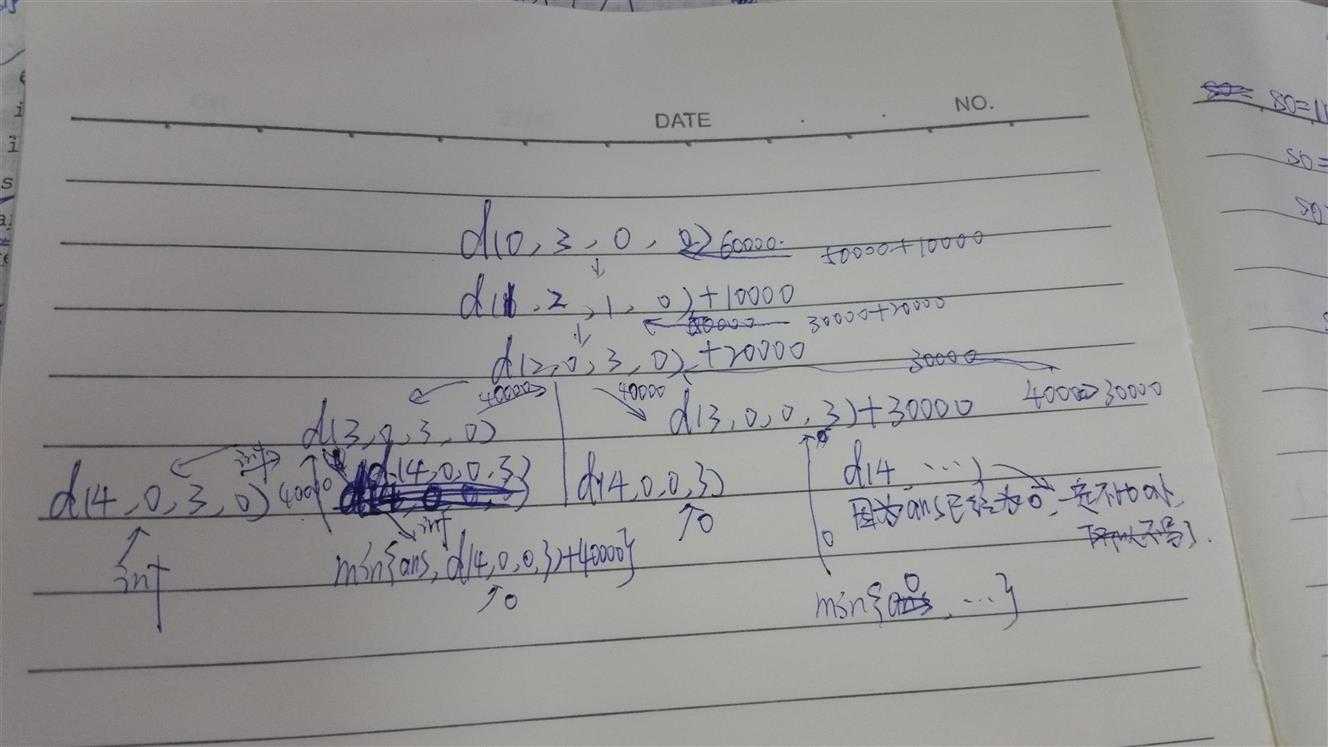 DATE NO.
d(0, 3, 0, 0) 60000. 50000+10000
d(1, 2, 1, 0)+10000
30000+20000
d(2, 0, 3, 0)+20000 30000
40000 40000 40000>30000
d(3, 0, 3, 0) d(3, 0, 0, 3)+30000
inf d(4, 0, 0, 3)
d(4, 0, 3, 0) 40000 d(4, 0, 0, 3) d(4, ...)
因为ans已经为0,一定不比0小,
inf 0 0 所以不写).
inf min{ans, d(4, 0, 0, 3)+40000}
0 min{0, ...}
so=
so=
so